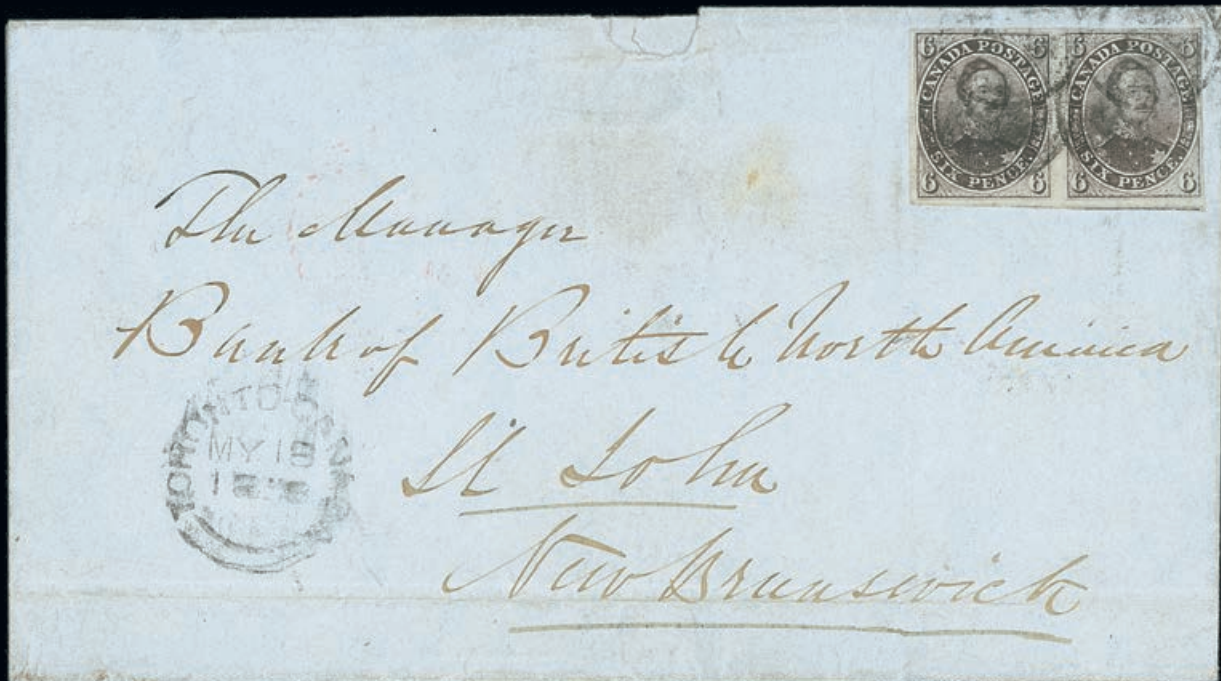 6 CANADA POSTAGE 6
6 SIX PENCE. 6
6 CANADA POSTAGE 6
6 SIX PENCE. 6
The Manager
Bank of British North America
St John
New Brunswick
TORONTO
MY 18